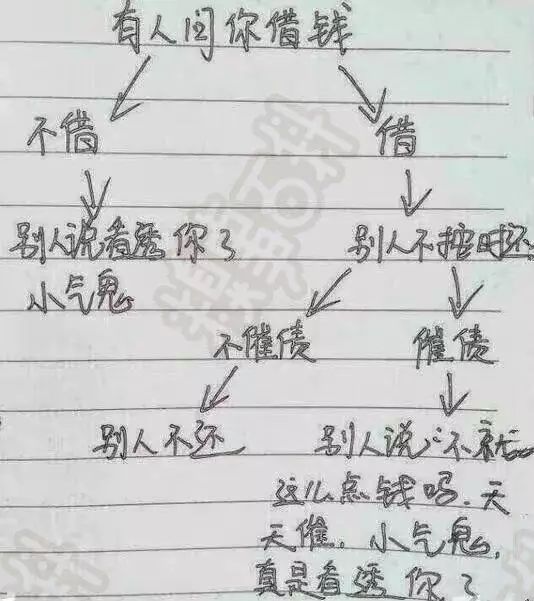 有人问你借钱
不借 借
别人说看透你了 别人不按时还
小气鬼
不催债 催债
别人不还 别人说：不就
这么点钱吗，天
天催，小气鬼，
真是看透你了